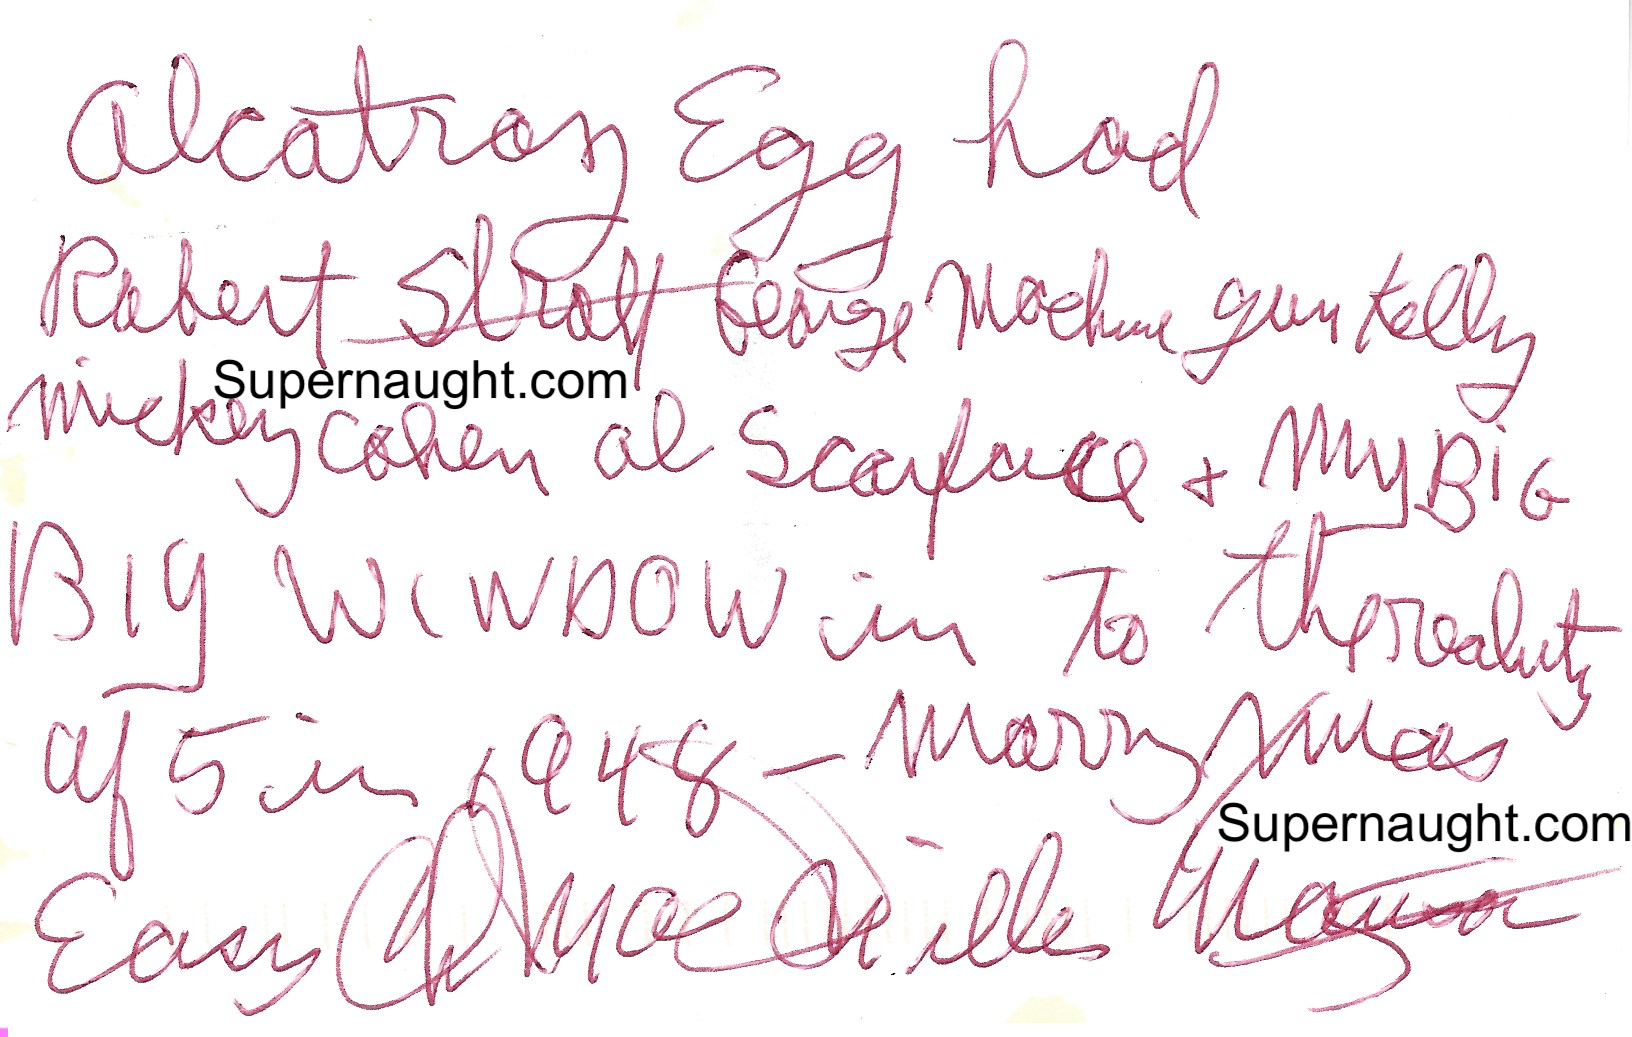 Alcatraz Egg had
Robert Stroff George Machine gun Kelly
Supernaught.com
mickey Cohen al Scarface + My BiG
BIG WINDOW in To the reality
of 5 in 1948 – Marry Xmas
Supernaught.com
Easy